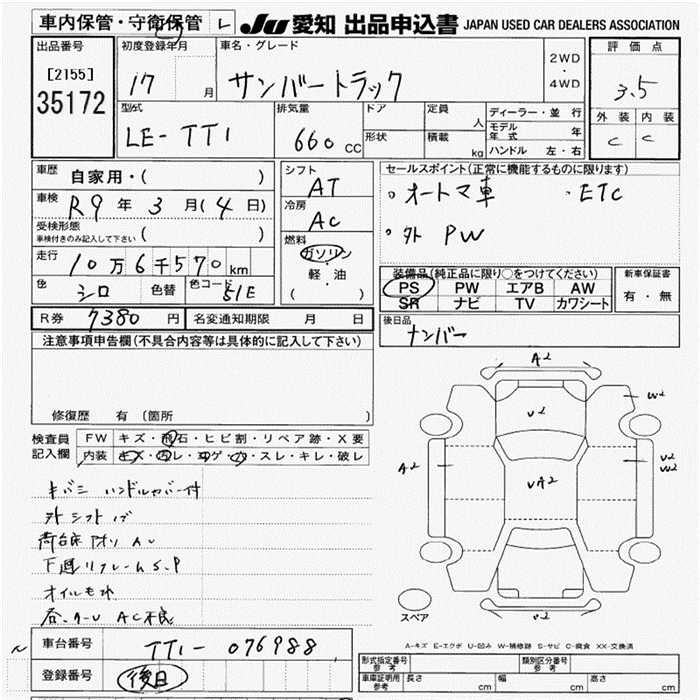 車内保管・守衛保管 L JU 愛知 出品申込書 JAPAN USED CAR DEALERS ASSOCIATION
出品番号 [2155] 35172
初度登録年月 17 月
車名・グレード サンバートラック
2WD・4WD
評価点 3.5
外装 C 内装 C
型式 LE-TT1
排気量 660 CC
ドア 形状
定員 人 積載 kg
ディーラー・並行
モデル年式 年
ハンドル 左・右
車歴 自家用・( )
車検 R9年 3月(4日)
受検形態 車検付きのみ記入して下さい ( )
走行 10万6千570km
色 シロ 色替 色コード 51E
シフト AT
冷房 AC
燃料 ガソリン 軽・油 ( )
セールスポイント(正常に機能するものに限ります)
。オートマ車 ・ETC
。外 PW
装備品(純正品に限り○をつけてください)
PS PW エアB AW
SR ナビ TV カワシート
新車保証書 有・無
R券 7380円 名変通知期限 月 日
後日品 ナンバー
注意事項申告欄(不具合内容等は具体的に記入して下さい)
修復歴 有 (箇所 )
検査員記入欄
FW キズ・飛石・ヒビ割・リペア跡・X要
内装 キズ・汚レ・コゲ・穴・スレ・キレ・破レ
キバミ ハンドルカバー付
下廻リフレームS.P
AC不良
A2
V2
W2
A2
VA2
V2
W2
V2
スペア
A-キズ E-エクボ U-凹み W-補修跡 S-サビ C-腐食 XX-交換済
車台番号 TT1-076988
登録番号 後日
形式指定番号 参考
類別区分番号 参考
車庫証明用 参考 長さ cm 幅 cm 高さ cm